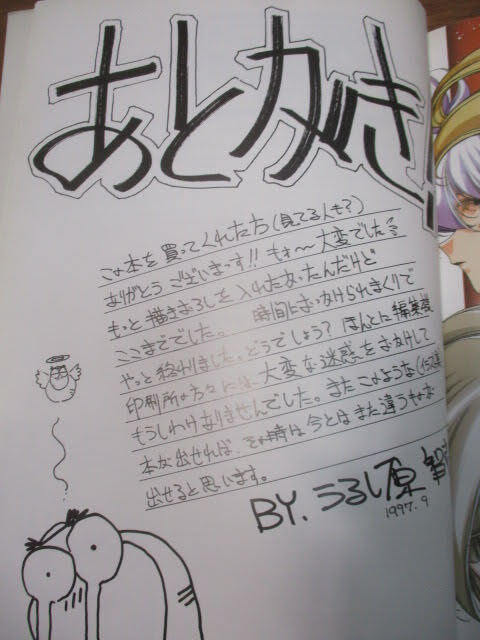 あとがき!
この本を買ってくれた方(見てる人も?)
ありがとうございまっす!! もぉ〜大変でした
もっと描きおろしを入れたかったんだけど
ここまででした。 時間におっかけられまくりで
やっと終わりました。どうでしょう? ほんとに編集様
印刷所の方々には、大変な迷惑をおかけして
もうしわけありませんでした。またこのような
本が出せれば、その時は今とはまた違うものが
出せると思います。
BY. うるし原 智
1997. 9